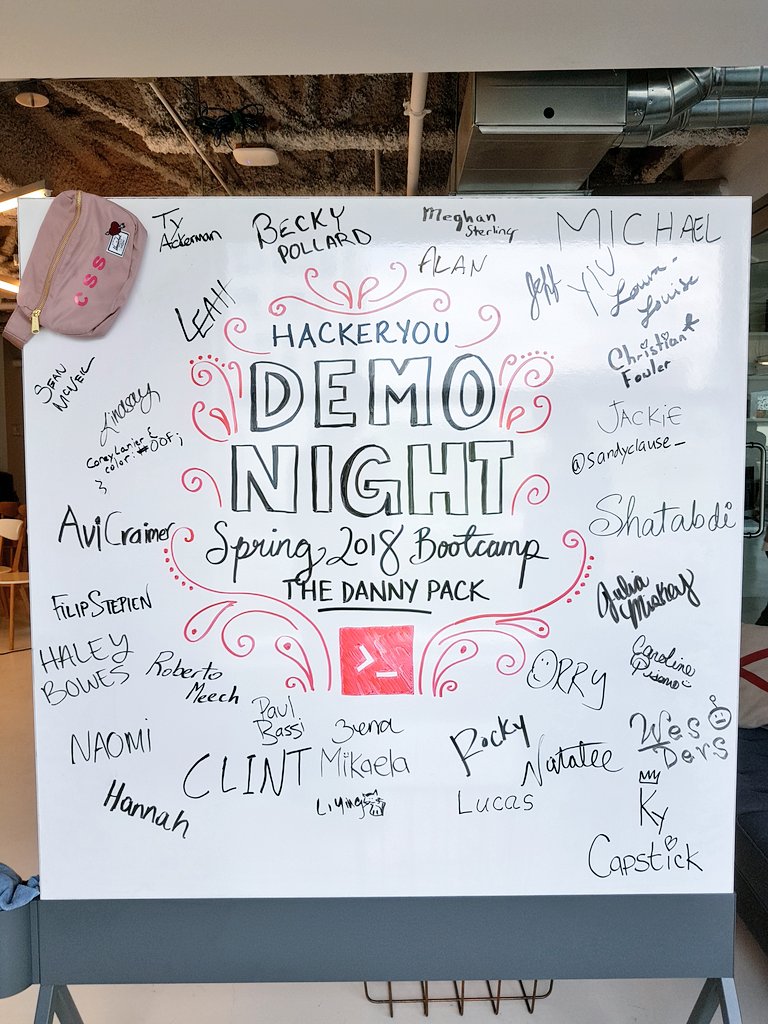 CSS
Ty
Ackerman
BECKY
POLLARD
Meghan
Sterling
MICHAEL
ALAN
Jeff
YIU
Laura-
Louise
LEAH
HACKERYOU
DEMO
NIGHT
Spring 2018 Bootcamp
THE DANNY PACK
>_
SEAN
MCNEIL
Lindsay
Christian
Fowler
JACKIE
@sandyclause_
Corey Lanier {
color: #00F;
}
Avi Craimer
Shatabdi
FILIP STEPIEN
Julia
Miskey
HALEY
BOWES
Roberto
Meech
ORRY
Caroline
Paul
Bassi
NAOMI
CLINT
Mikaela
Rocky
Natalee
Wes
Ders
Hannah
Liying
Lucas
Ky
Capstick